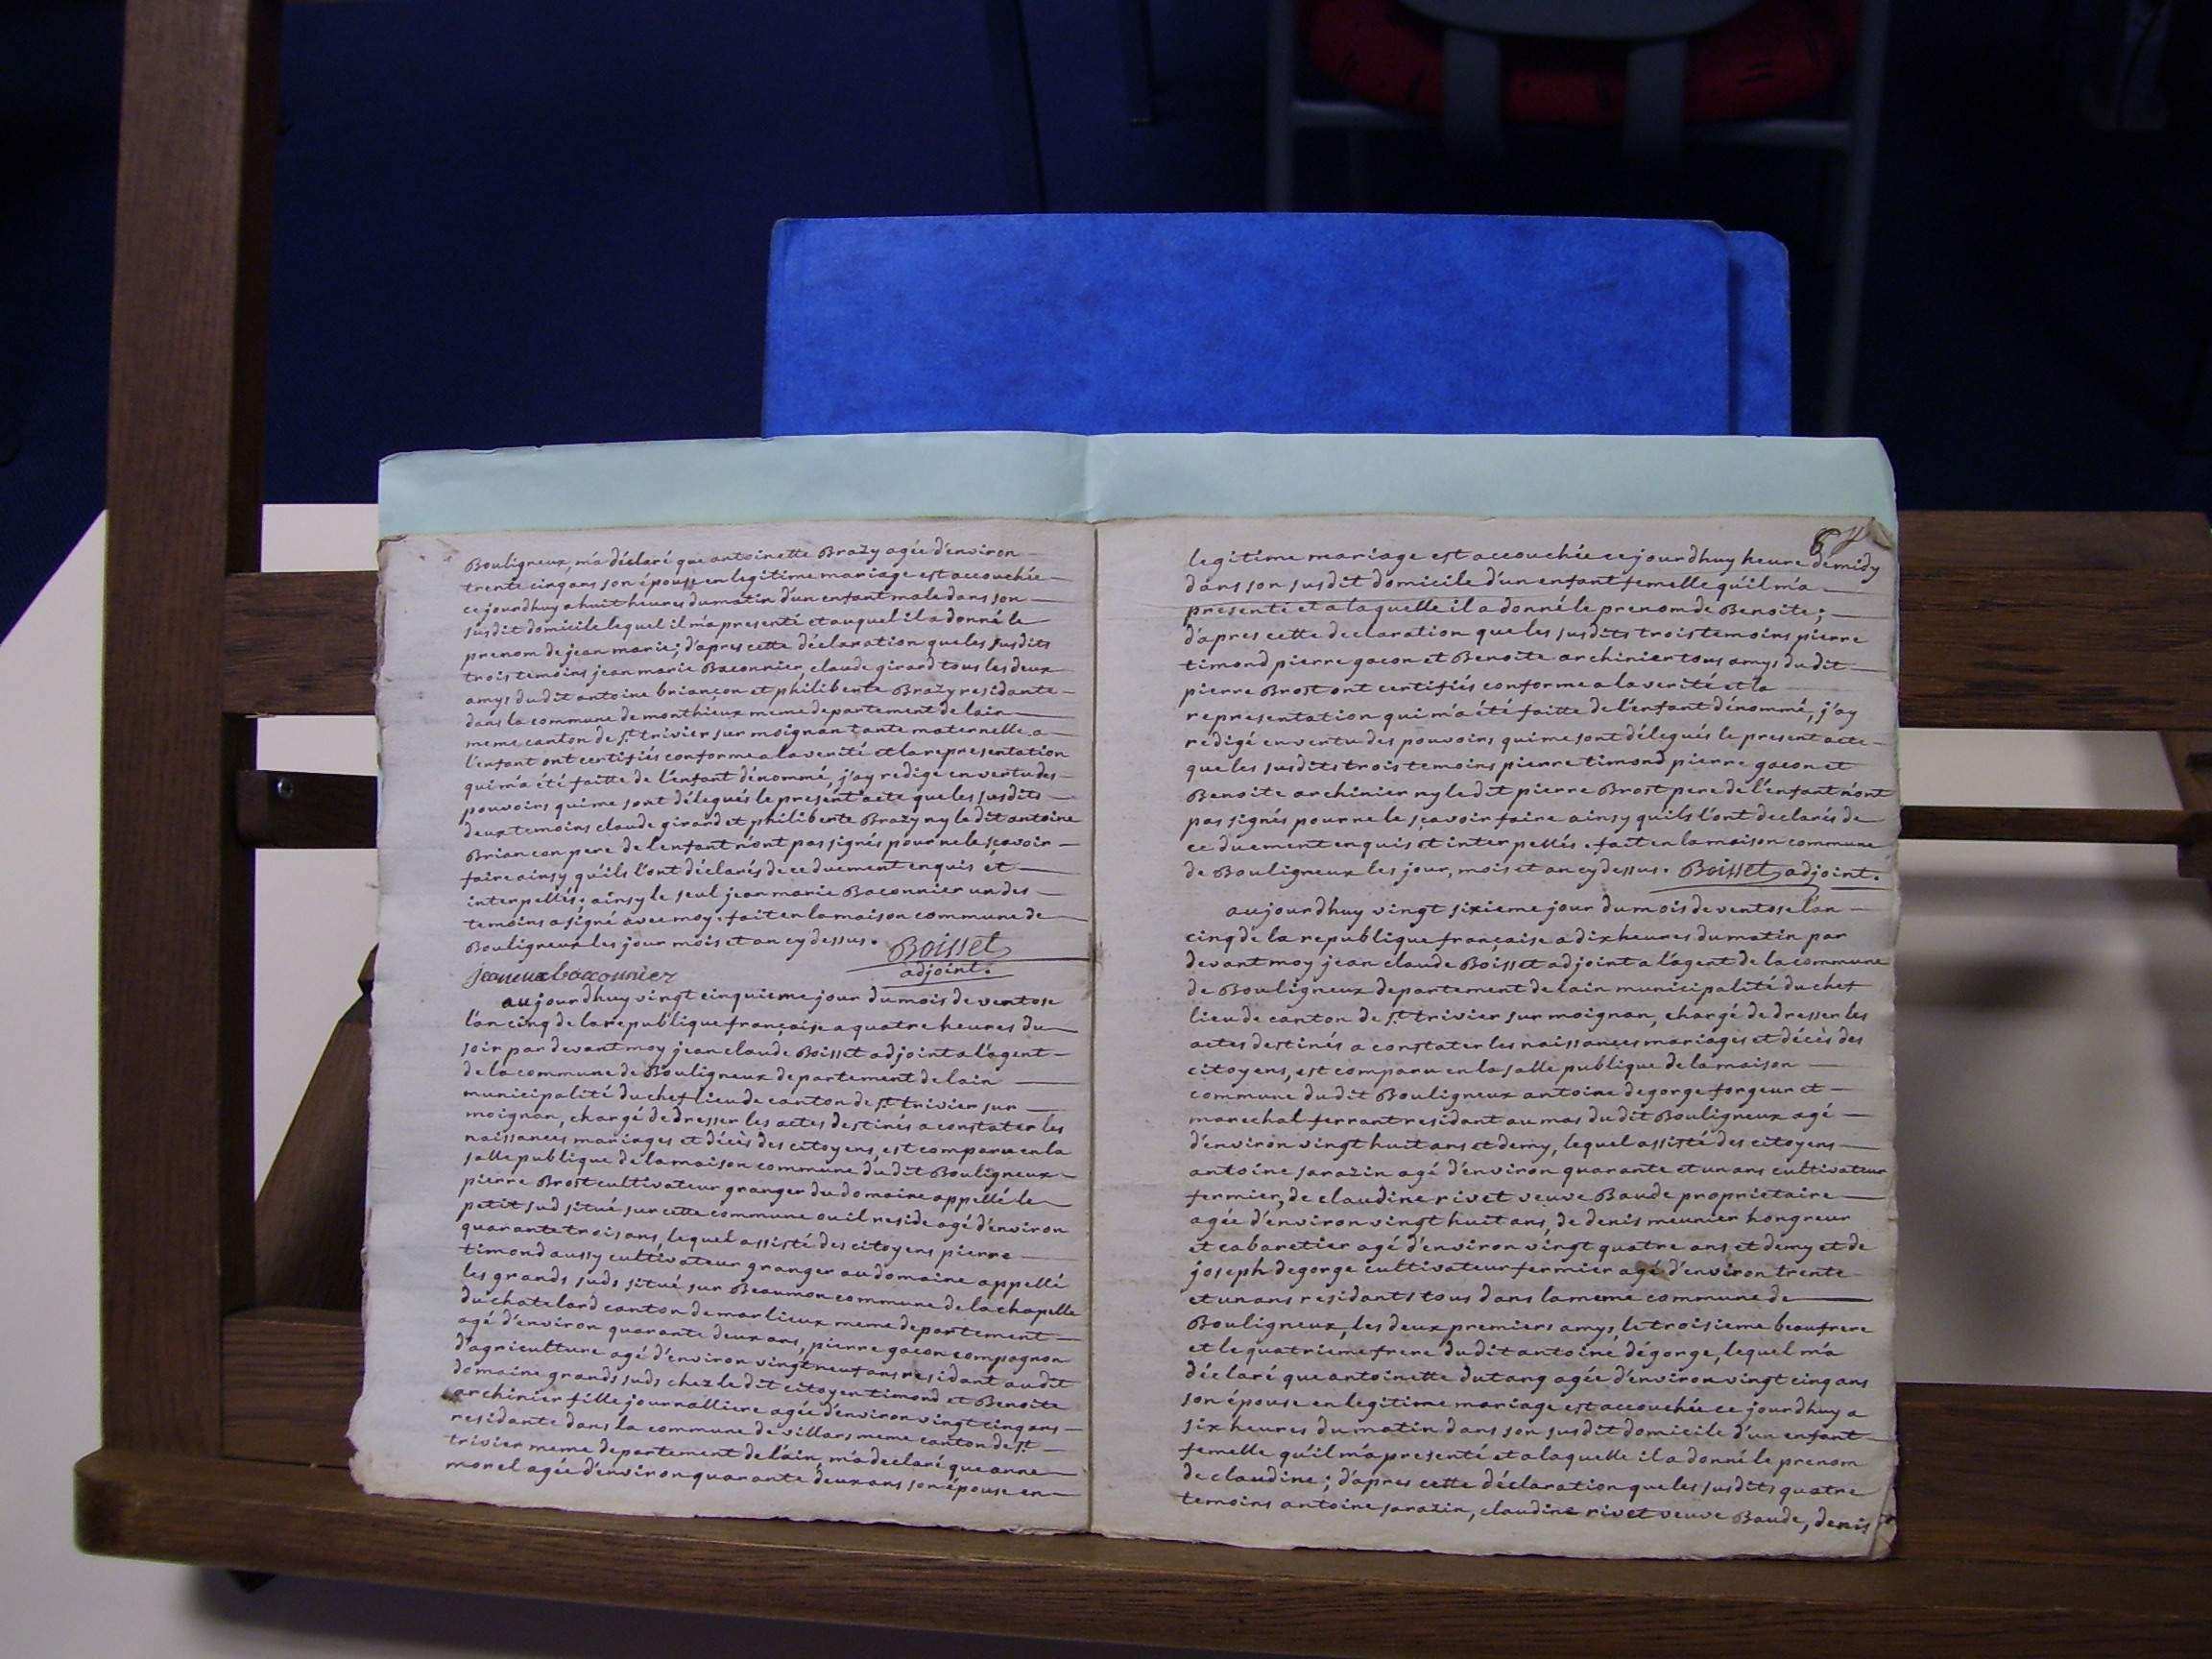 Bouligneux, m'a déclaré que antoinette Brazy agée d'environ
trente cinq ans son épouse en legitime mariage est accouchée
ce jourdhuy a huit heures du matin d'un enfant male dans son
susdit domicile lequel il m'a presenté et auquel il a donné le
prenom de jean marie; d'apres cette déclaration que les susdits
trois temoins jean marie Baconnier, claude girard tous les deux
amys dudit antoine briançon et philiberte Brazy residante
dans la commune de monthieux meme departement de lain
meme canton de st trivier sur moignan tante maternelle a
l'enfant ont certifiés conforme a la verité et la representation
qui m'a été faitte de l'enfant dénommé, j'ay redigé en vertu des
pouvoirs qui me sont délegués le present acte que les susdits
deux temoins claude girard et philiberte Brazy ny ledit antoine
Briancon pere de l'enfant n'ont pas signés pour ne le sçavoir
faire ainsy qu'ils l'ont déclarés de ce duement enquis et
interpellés; ainsy le seul jean marie Baconnier un des
temoins a signé avec moy. fait en la maison commune de
Bouligneux les jour mois et an cy dessus. Boisset
adjoint.
aujourdhuy vingt cinquieme jour du mois de ventose
l'an cinq de la republique française a quatre heures du
soir par devant moy jean claude Boisset adjoint a l'agent
de la commune de Bouligneux departement de lain
municipalité du chef lieu de canton de st trivier sur
moignan, chargé de dresser les actes destinés a constater les
naissances mariages et décès des citoyens, est comparu en la
salle publique de la maison commune dudit Bouligneux
pierre Brost cultivateur granger du domaine appellé le
petit sud situé sur cette commune ou il reside agé d'environ
quarante trois ans, lequel assisté des citoyens pierre
timond aussy cultivateur granger au domaine appellé
les grands suds situé sur Beaumon commune de la chapelle
du chatelard canton de marlieux meme departement
agé d'environ quarante deux ans, pierre gacon compagnon
d'agriculture agé d'environ vingt neuf ans residant audit
domaine grands suds chez ledit citoyen timond et Benoite
archinier fille journalliere agée d'environ vingt cinq ans
residante dans la commune de villars meme canton de st
trivier meme departement de l'ain, m'a declaré que anne
morel agée d'environ quarante deux ans son épouse en
legitime mariage est accouchée ce jourdhuy heure de midy
dans son susdit domicile d'un enfant femelle qu'il m'a
presenté et a laquelle il a donné le prenom de Benoite;
d'apres cette declaration que les susdits trois temoins pierre
timond pierre gacon et Benoite archinier tous amys dudit
pierre Brost ont certifiés conforme a la verité et la
representation qui m'a été faitte de l'enfant dénommé, j'ay
redigé en vertu des pouvoirs qui me sont délegués le present acte
que les susdits trois temoins pierre timond pierre gacon et
Benoite archinier ny ledit pierre Brost pere de l'enfant n'ont
pas signés pour ne le sçavoir faire ainsy quils l'ont declarés de
ce duement enquis et interpellés. fait en la maison commune
de Bouligneux les jour, mois et an cy dessus. Boisset adjoint.
aujourdhuy vingt sixieme jour du mois de ventose l'an
cinq de la republique française a dix heures du matin par
devant moy jean claude Boisset adjoint a l'agent de la commune
de Bouligneux departement de lain municipalité du chef
lieu de canton de st trivier sur moignan, chargé de dresser les
actes destinés a constater les naissances mariages et décès des
citoyens, est comparu en la salle publique de la maison
commune dudit Bouligneux antoine degorge forgeur et
marechal ferrant residant au mas dudit Bouligneux agé
d'environ vingt huit ans et demy, lequel assisté des citoyens
antoine sarazin agé d'environ quarante et un ans cultivateur
fermier, de claudine rivet veuve Baude proprietaire
agée d'environ vingt huit ans, de denis meunier hongreur
et cabaretier agé d'environ vingt quatre ans et demy et de
joseph degorge cultivateur fermier agé d'environ trente
et un ans residants tous dans la meme commune de
Bouligneux, les deux premiers amys, le troisieme beaufrere
et le quatrieme frere dudit antoine dégorge, lequel m'a
déclaré que antoinette dutang agée d'environ vingt cinq ans
son épouse en legitime mariage est accouchée ce jourdhuy a
six heures du matin dans son susdit domicile d'un enfant
femelle qu'il m'a presenté et a laquelle il a donné le prenom
de claudine; d'apres cette déclaration que les susdits quatre
temoins antoine sarazin, claudine rivet veuve Baude, denis